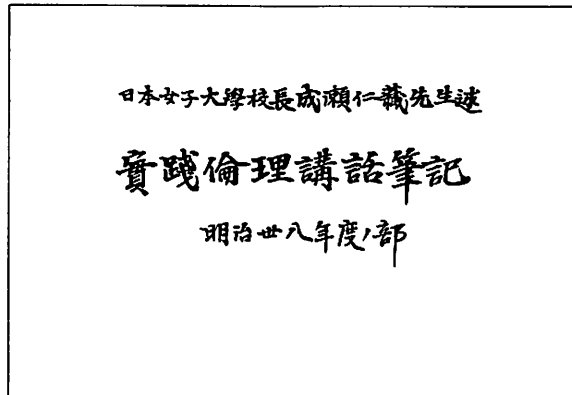 日本女子大學校長成瀬仁藏先生述
實踐倫理講話筆記
明治卅八年度ノ部